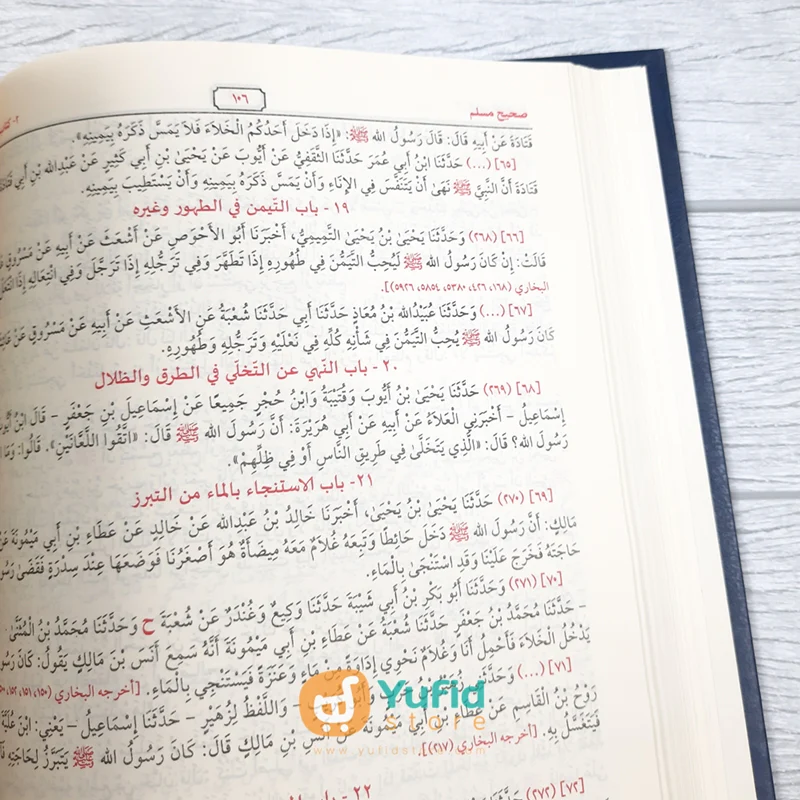 صحيح مسلم
١٠٦
٢- كتاب
قَتَادَةَ عَنْ أَبِيهِ قَالَ: قَالَ رَسُولُ اللهِ ﷺ: «إِذَا دَخَلَ أَحَدُكُمُ الْخَلَاءَ فَلَا يَمَسَّ ذَكَرَهُ بِيَمِينِهِ».
[٦٥] (...) حَدَّثَنَا ابْنُ أَبِي عُمَرَ حَدَّثَنَا الثَّقَفِيُّ عَنْ أَيُّوبَ عَنْ يَحْيَىٰ بْنِ أَبِي كَثِيرٍ عَنْ عَبْدِاللهِ بْنِ أَبِي
قَتَادَةَ أَنَّ النَّبِيَّ ﷺ نَهَىٰ أَنْ يَتَنَفَّسَ فِي الْإِنَاءِ وَأَنْ يَمَسَّ ذَكَرَهُ بِيَمِينِهِ وَأَنْ يَسْتَطِيبَ بِيَمِينِهِ.
١٩ - باب التّيمن في الطهور وغيره
[٦٦] (٢٦٨) وَحَدَّثَنَا يَحْيَىٰ بْنُ يَحْيَىٰ التَّمِيمِيُّ، أَخْبَرَنَا أَبُو الْأَحْوَصِ عَنْ أَشْعَثَ عَنْ أَبِيهِ عَنْ مَسْرُوقٍ
قَالَتْ: إِنْ كَانَ رَسُولُ اللهِ ﷺ لَيُحِبُّ التَّيَمُّنَ فِي طُهُورِهِ إِذَا تَطَهَّرَ وَفِي تَرَجُّلِهِ إِذَا تَرَجَّلَ وَفِي انْتِعَالِهِ إِذَا
البخاري (١٦٨، ٤٢٦، ٥٣٨٠، ٥٨٥٤، ٥٩٢٦)].
[٦٧] (...) وَحَدَّثَنَا عُبَيْدُاللهِ بْنُ مُعَاذٍ حَدَّثَنَا أَبِي حَدَّثَنَا شُعْبَةُ عَنِ الْأَشْعَثِ عَنْ أَبِيهِ عَنْ مَسْرُوقٍ عَنْ
كَانَ رَسُولُ اللهِ ﷺ يُحِبُّ التَّيَمُّنَ فِي شَأْنِهِ كُلِّهِ فِي نَعْلَيْهِ وَتَرَجُّلِهِ وَطُهُورِهِ.
٢٠ - باب النّهي عن التّخلّي في الطرق والظلال
[٦٨] (٢٦٩) حَدَّثَنَا يَحْيَىٰ بْنُ أَيُّوبَ وَقُتَيْبَةُ وَابْنُ حُجْرٍ جَمِيعًا عَنْ إِسْمَاعِيلَ بْنِ جَعْفَرٍ - قَالَ ابْنُ
إِسْمَاعِيلُ - أَخْبَرَنِي الْعَلَاءُ عَنْ أَبِيهِ عَنْ أَبِي هُرَيْرَةَ: أَنَّ رَسُولَ اللهِ ﷺ قَالَ: «اتَّقُوا اللَّعَّانَيْنِ». قَالُوا: وَمَا
رَسُولَ اللهِ؟ قَالَ: «الَّذِي يَتَخَلَّىٰ فِي طَرِيقِ النَّاسِ أَوْ فِي ظِلِّهِمْ».
٢١- باب الاستنجاء بالماء من التبرز
[٦٩] (٢٧٠) حَدَّثَنَا يَحْيَىٰ بْنُ يَحْيَىٰ، أَخْبَرَنَا خَالِدُ بْنُ عَبْدِاللهِ عَنْ خَالِدٍ عَنْ عَطَاءِ بْنِ أَبِي مَيْمُونَةَ
مَالِكٍ: أَنَّ رَسُولَ اللهِ ﷺ دَخَلَ حَائِطًا وَتَبِعَهُ غُلَامٌ مَعَهُ مِيضَأَةٌ هُوَ أَصْغَرُنَا فَوَضَعَهَا عِنْدَ سِدْرَةٍ فَقَضَىٰ
حَاجَتَهُ فَخَرَجَ عَلَيْنَا وَقَدِ اسْتَنْجَىٰ بِالْمَاءِ.
[٧٠] (٢٧١) وَحَدَّثَنَا أَبُو بَكْرِ بْنُ أَبِي شَيْبَةَ حَدَّثَنَا وَكِيعٌ وَغُنْدَرٌ عَنْ شُعْبَةَ ح وَحَدَّثَنَا مُحَمَّدُ بْنُ الْمُثَنَّىٰ
- حَدَّثَنَا مُحَمَّدُ بْنُ جَعْفَرٍ حَدَّثَنَا شُعْبَةُ عَنْ عَطَاءِ بْنِ أَبِي مَيْمُونَةَ أَنَّهُ سَمِعَ أَنَسَ بْنَ مَالِكٍ يَقُولُ: كَانَ
يَدْخُلُ الْخَلَاءَ فَأَحْمِلُ أَنَا وَغُلَامٌ نَحْوِي إِدَاوَةً مِنْ مَاءٍ وَعَنَزَةً فَيَسْتَنْجِي بِالْمَاءِ. [أخرجه البخاري (١٥٠، ١٥١، ١٥٢،
[٧١] (...) وَحَدَّثَنِي زُهَيْرُ بْنُ حَرْبٍ وَأَبُو - وَاللَّفْظُ لِزُهَيْرٍ - حَدَّثَنَا إِسْمَاعِيلُ - يَعْنِي: ابْنَ عُلَيَّةَ
رَوْحُ بْنُ الْقَاسِمِ عَنْ عَطَاءِ بْنِ أَبِي مَيْمُونَةَ عَنْ أَنَسِ بْنِ مَالِكٍ قَالَ: كَانَ رَسُولُ اللهِ ﷺ يَتَبَرَّزُ لِحَاجَتِهِ
فَيَتَغَسَّلُ بِهِ. [أخرجه البخاري (٢١٧)].
٢٢ - باب
[٧٢] (٢٧٢) حَدَّثَنَا
Yufid
store